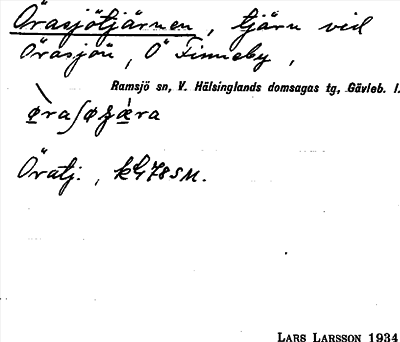 Örasjötjärnen, tjärn vid
Örasjön, Ö Finneby,
Ramsjö sn, V. Hälsinglands domsagas tg, Gävleb. l.
Öratj.,
LARS LARSSON 1934